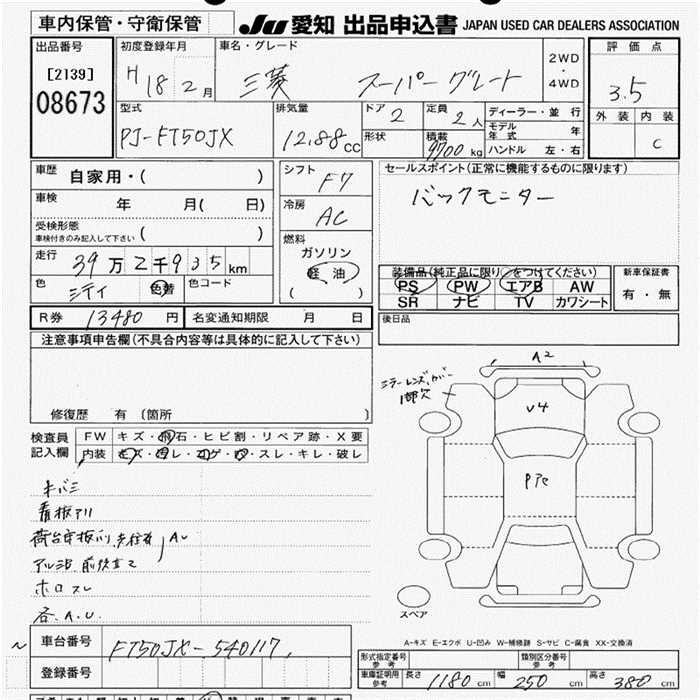 車内保管・守衛保管
JU 愛知 出品申込書 JAPAN USED CAR DEALERS ASSOCIATION
出品番号
[2139]
08673
初度登録年月
H 18 2 月
車名・グレード
三菱 スーパーグレート
2WD
・
4WD
評価点
3.5
外装 内装
C
型式
PJ-FT50JX
排気量
12.88 cc
ドア
2
形状
定員
2 人
積載
9700 kg
ディーラー・並行
モデル年式 年
ハンドル 左・右
車歴
自家用・( )
車検
年 月( 日)
受検形態
車検付きのみ記入して下さい ( )
走行
39 万 2 千 9 3 5 km
色
色替
色コード
シフト
F7
冷房
AC
燃料
ガソリン
軽油
( )
セールスポイント(正常に機能するものに限ります)
バックモニター
装備品(純正品に限り○をつけてください)
PS PW エアB AW
SR ナビ TV カワシート
新車保証書
有・無
R券 13480 円
名変通知期限 月 日
後日品
注意事項申告欄(不具合内容等は具体的に記入して下さい)
修復歴 有 (箇所 )
検査員
記入欄
FW キズ・飛石・ヒビ割・リペア跡・X要
内装 キズ・汚レ・コゲ・穴・スレ・キレ・破レ
キバミ
看板アリ
ホロスレ
各A.U.
A2
V4
スペア
A-キズ E-エクボ U-凹み W-補修跡 S-サビ C-腐食 XX-交換済
車台番号
FT50JX-540117
登録番号
形式指定番号
参考
類別区分番号
参考
車庫証明用
参考
長さ 1180 cm 幅 250 cm 高さ 380 cm